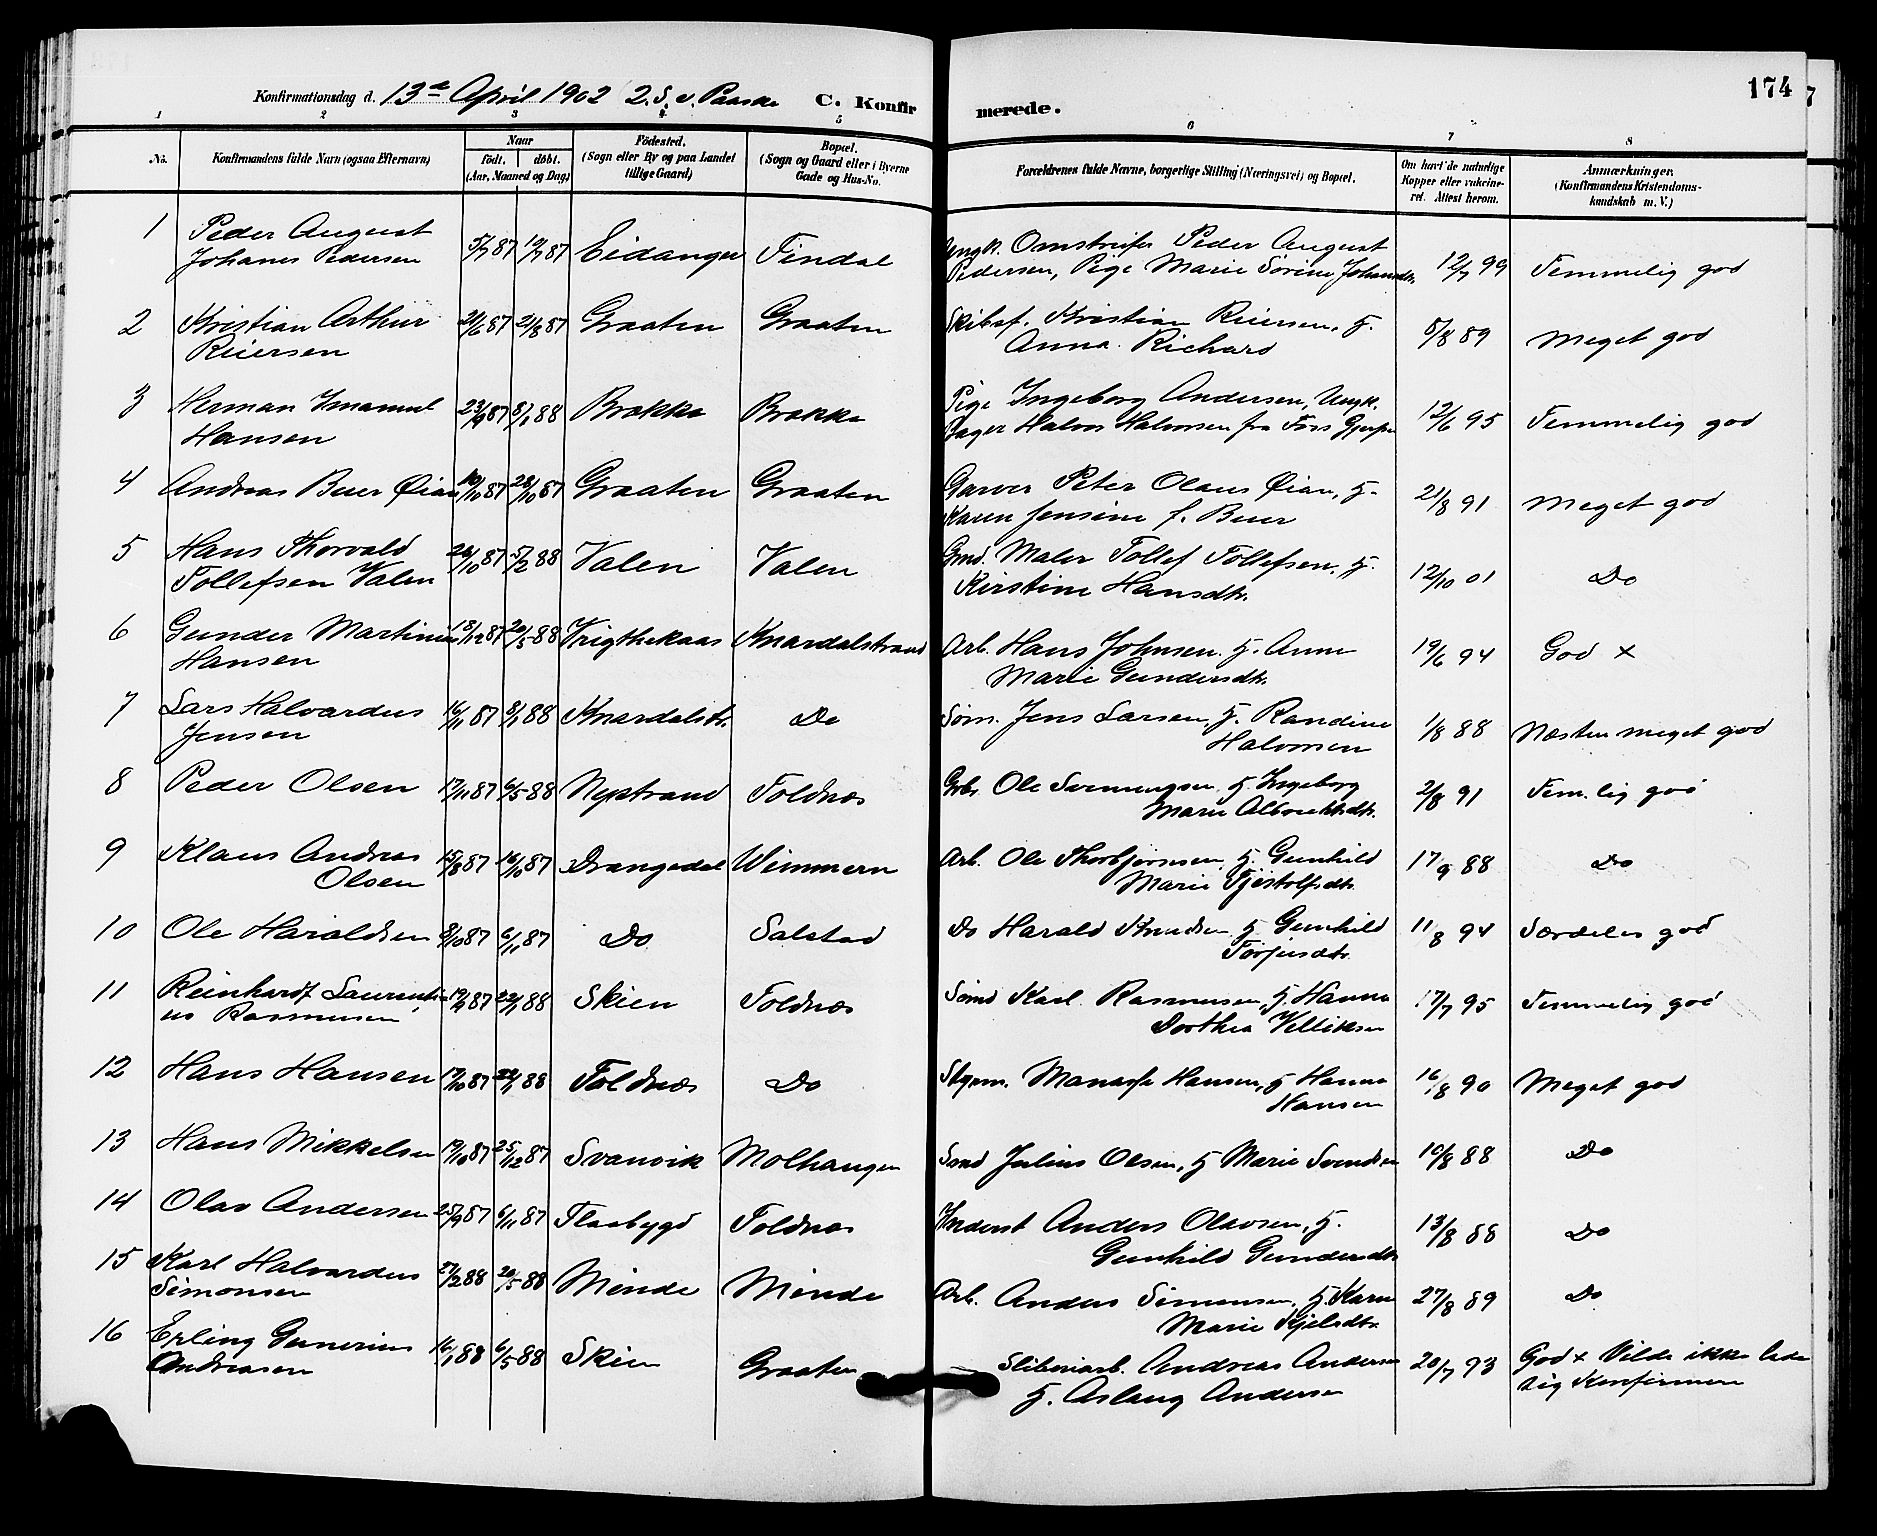 174
Konfirmationsdag d. 13de April 1902 2. S. e. Paaske C. Konfir merede.
1 2 3 4 5 6 7 8
No. Konfirmandens fulde Navn (ogsaa Efternavn) Naar Födested. Bopæl. Forældrenes fulde Navne, borgerlige Stilling (Næringsvei) og Bopæl. Om havt de naturlige Anmærkninger.
födt. døbt. (Sogn eller By og paa Landet (Sogn og Gaard eller i Byerne Kopper eller vakcine- (Konfirmandens Kristendoms-
(Aar, Maaned og Dag) tillige Gaard) Gade og Hus-No. ret. Attest herom. kundskab m. V.)
1 Peder August 5/7 87 19/7 87 Eidanger Findal Ungk. Omstreifer Peder August 12/7 99 Temmelig god
Johanes Pedersen Pedersen, Pige Marie Sørine Johansdtr.
2 Kristian Arthur 21/6 87 21/8 87 Graaten Graaten Skibsf. Kristian Reiersen, H. 5/8 89 Meget god
Reiersen Anna Richard
3 Herman Imanuel 23/9 87 8/1 88 Brække Brække Pige Ingeborg Andersen, Ungk. 12/6 95 Temmelig god
Hansen Jager Halvor Halvorsen fra Foss Gjerpen
4 Andreas Beier Øian 10/10 87 28/10 87 Graaten Graaten Garver Peter Olaus Øian, H. 21/8 91 Meget god
Karen Jensine f. Beier
5 Hans Thorvald 26/10 87 5/2 88 Valen Valen Gmd. Maler Tollef Tollefsen, H. 12/10 01 Do
Tollefsen Valen Kirstine Hansdtr.
6 Gunder Martinius 18/12 87 20/5 88 Knardalstrand Arb. Hans Johnsen, H. Anne 19/6 94 God x
Hansen Marie Gundersdtr.
7 Lars Halvardus 16/11 87 8/1 88 Knardalstr. Do Søm. Jens Larsen, H. Randine 1/8 88 Næsten meget god
Jensen Halvorsen
8 Peder Olsen 17/11 87 6/5 88 Nystrand Foldnæs Grbr. Ole Svenningsen H. Ingeborg 2/8 91 Tem.lig god
Marie Albrechtsdtr.
9 Klaus Andreas 15/8 87 16/10 87 Drangedal Wimmern Arb. Ole Thorbjørnsen, H. Gunhild 17/9 88 Do
Olsen Marie Tjøstolfsdtr.
10 Ole Haraldsen 8/10 87 6/11 87 Do Salstad Do Harald Knudsen, H. Gunhild 11/8 94 Særdeles god
Torjusdtr.
11 Reinhardt Laurenti- 19/9 87 22/1 88 Skien Foldnæs Sømd Karl Rasmusen, H. Hanna 17/7 95 Temmelig god
us Rasmusen Dorthea
12 Hans Hansen 17/10 87 22/1 88 Foldnæs Do Styrm. Manasse Hansen, H Hanna 16/8 90 Meget god
Hansen
13 Hans Mikkelsen 19/10 87 25/12 87 Svanvik Molhaugen Smd Julius Olsen, H Marie Svendsen 10/8 88 Do
14 Olav Andersen 25/9 87 6/11 87 Flaabygd Foldnæs Inderst Anders Olavsen, H. 13/8 88 Do
Gunhild Gundersdtr.
15 Karl Halvardus 27/2 88 20/5 88 Mende Mende Arb. Anders Simonsen, H. Karen 27/8 89 Do
Simonsen Marie Kjelsdtr.
16 Erling Gunerius 16/1 88 6/5 88 Skien Graaten Sliberiarb. Andreas Andersen 20/7 93 God x Vilde ikke lade
Andreasen H. Aslaug Andersen sig Konfirmere